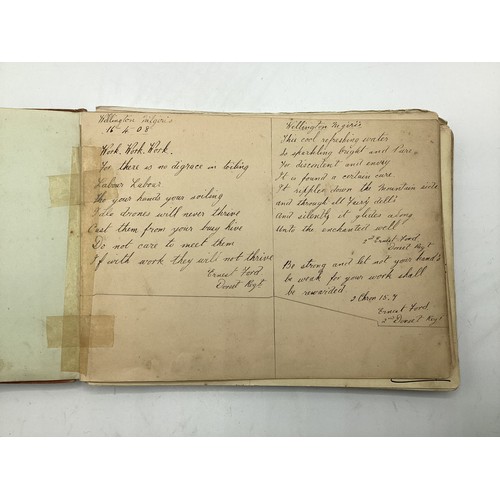 Wellington Nilgiris
16th 4 08
Work. Work. Work.
For there is no digrace in toiling
Labour Labour
Tho your hands your soiling
Idle drones will never thrive
Cast them from your busy hive
Do not care to meet them
If with work they will not thrive
Ernest Ford
Dorset Regt
Wellington Nigiris
This cool refreshing water
So sparkling bright and Pure
For discontent and envy
It is found a certain cure.
It ripples down the Mountain side
and through all Fairy dells
And silently it glides along
Unto the enchanted well
Ernest Ford
Dorset Regt
Be strong and let not your hands
be weak for your work shall
be rewarded
2 Chron 15.7
Ernest Ford
2nd Dorset Regt